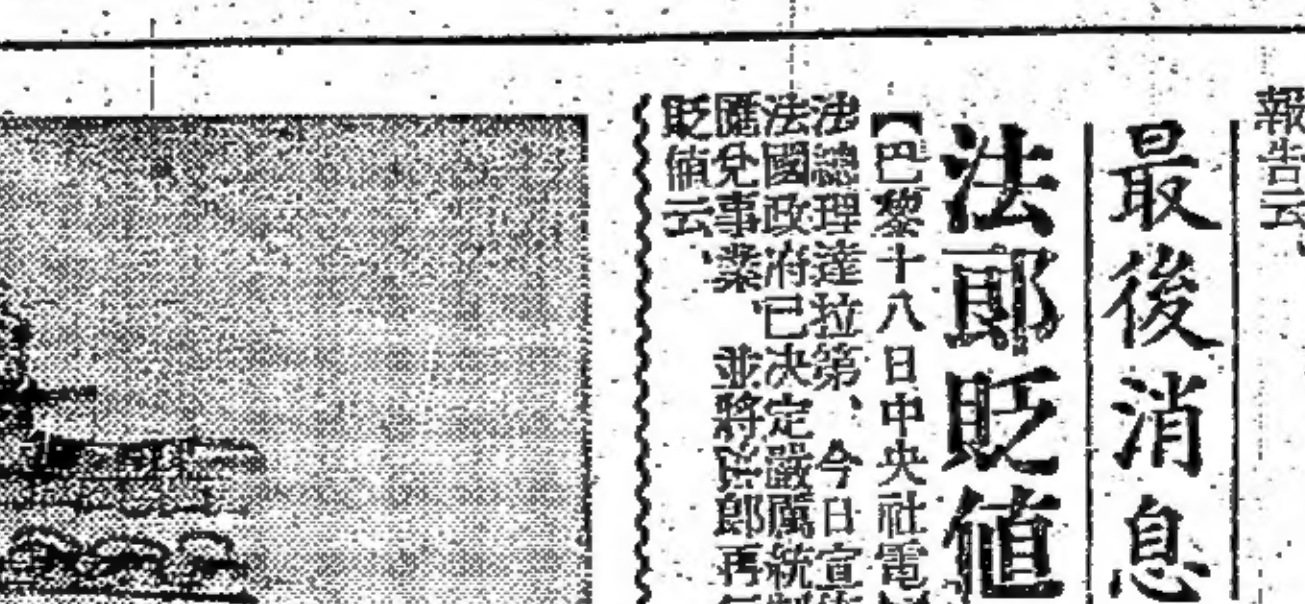 報告云、
最後消息
法郎貶值
【巴黎十八日中央社電
法總理達拉第、今日宣
法國政府已決定嚴厲統制
匯兌事業、並將法郎再
貶值云、